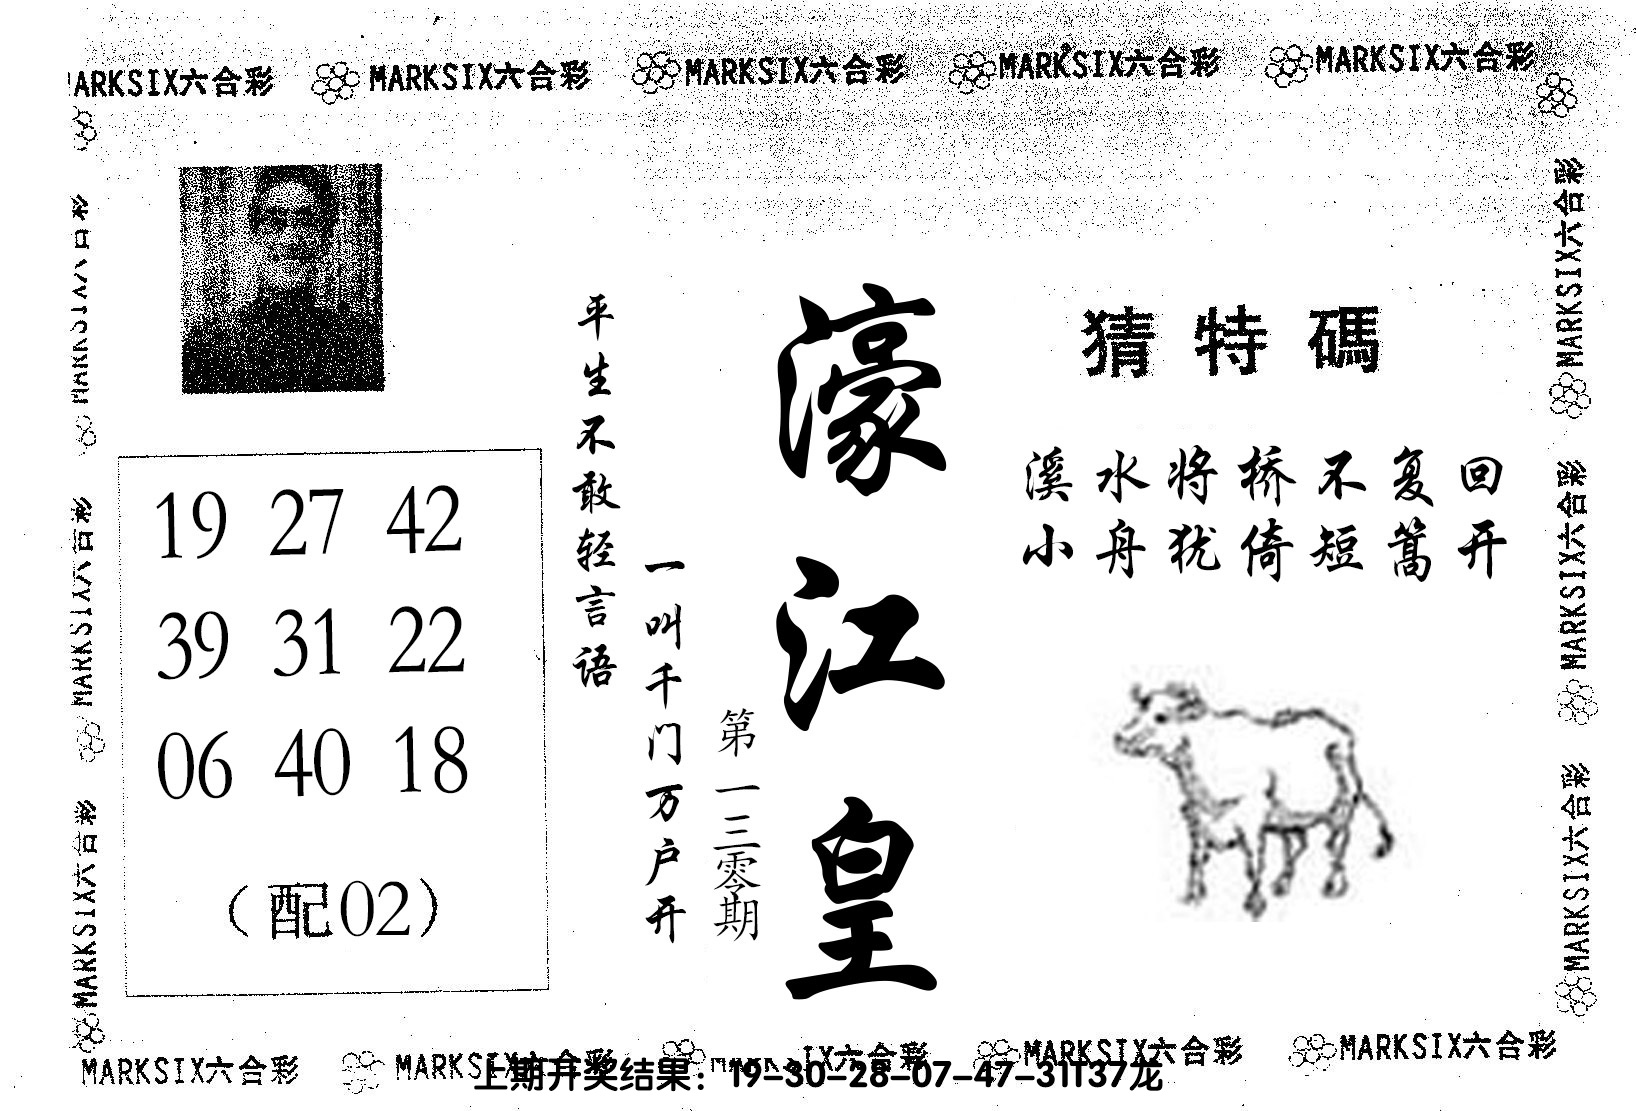 MARKSIX六合彩 MARKSIX六合彩 MARKSIX六合彩 MARKSIX六合彩 MARKSIX六合彩
猜特碼
溪水将桥不复回
小舟犹倚短篙开
濠江皇
第一三零期
一叫千门万户开
平生不敢轻言语
19 27 42
39 31 22
06 40 18
（配02）
MARKSIX六合彩
MARKSIX六合彩
MARKSIX六合彩
MARKSIX六合彩
MARKSIX六合彩
MARKSIX六合彩
MARKSIX六合彩 MARKSIX六合彩 MARKSIX六合彩 MARKSIX六合彩 MARKSIX六合彩
上期开奖结果：19-30-28-07-47-31T37龙